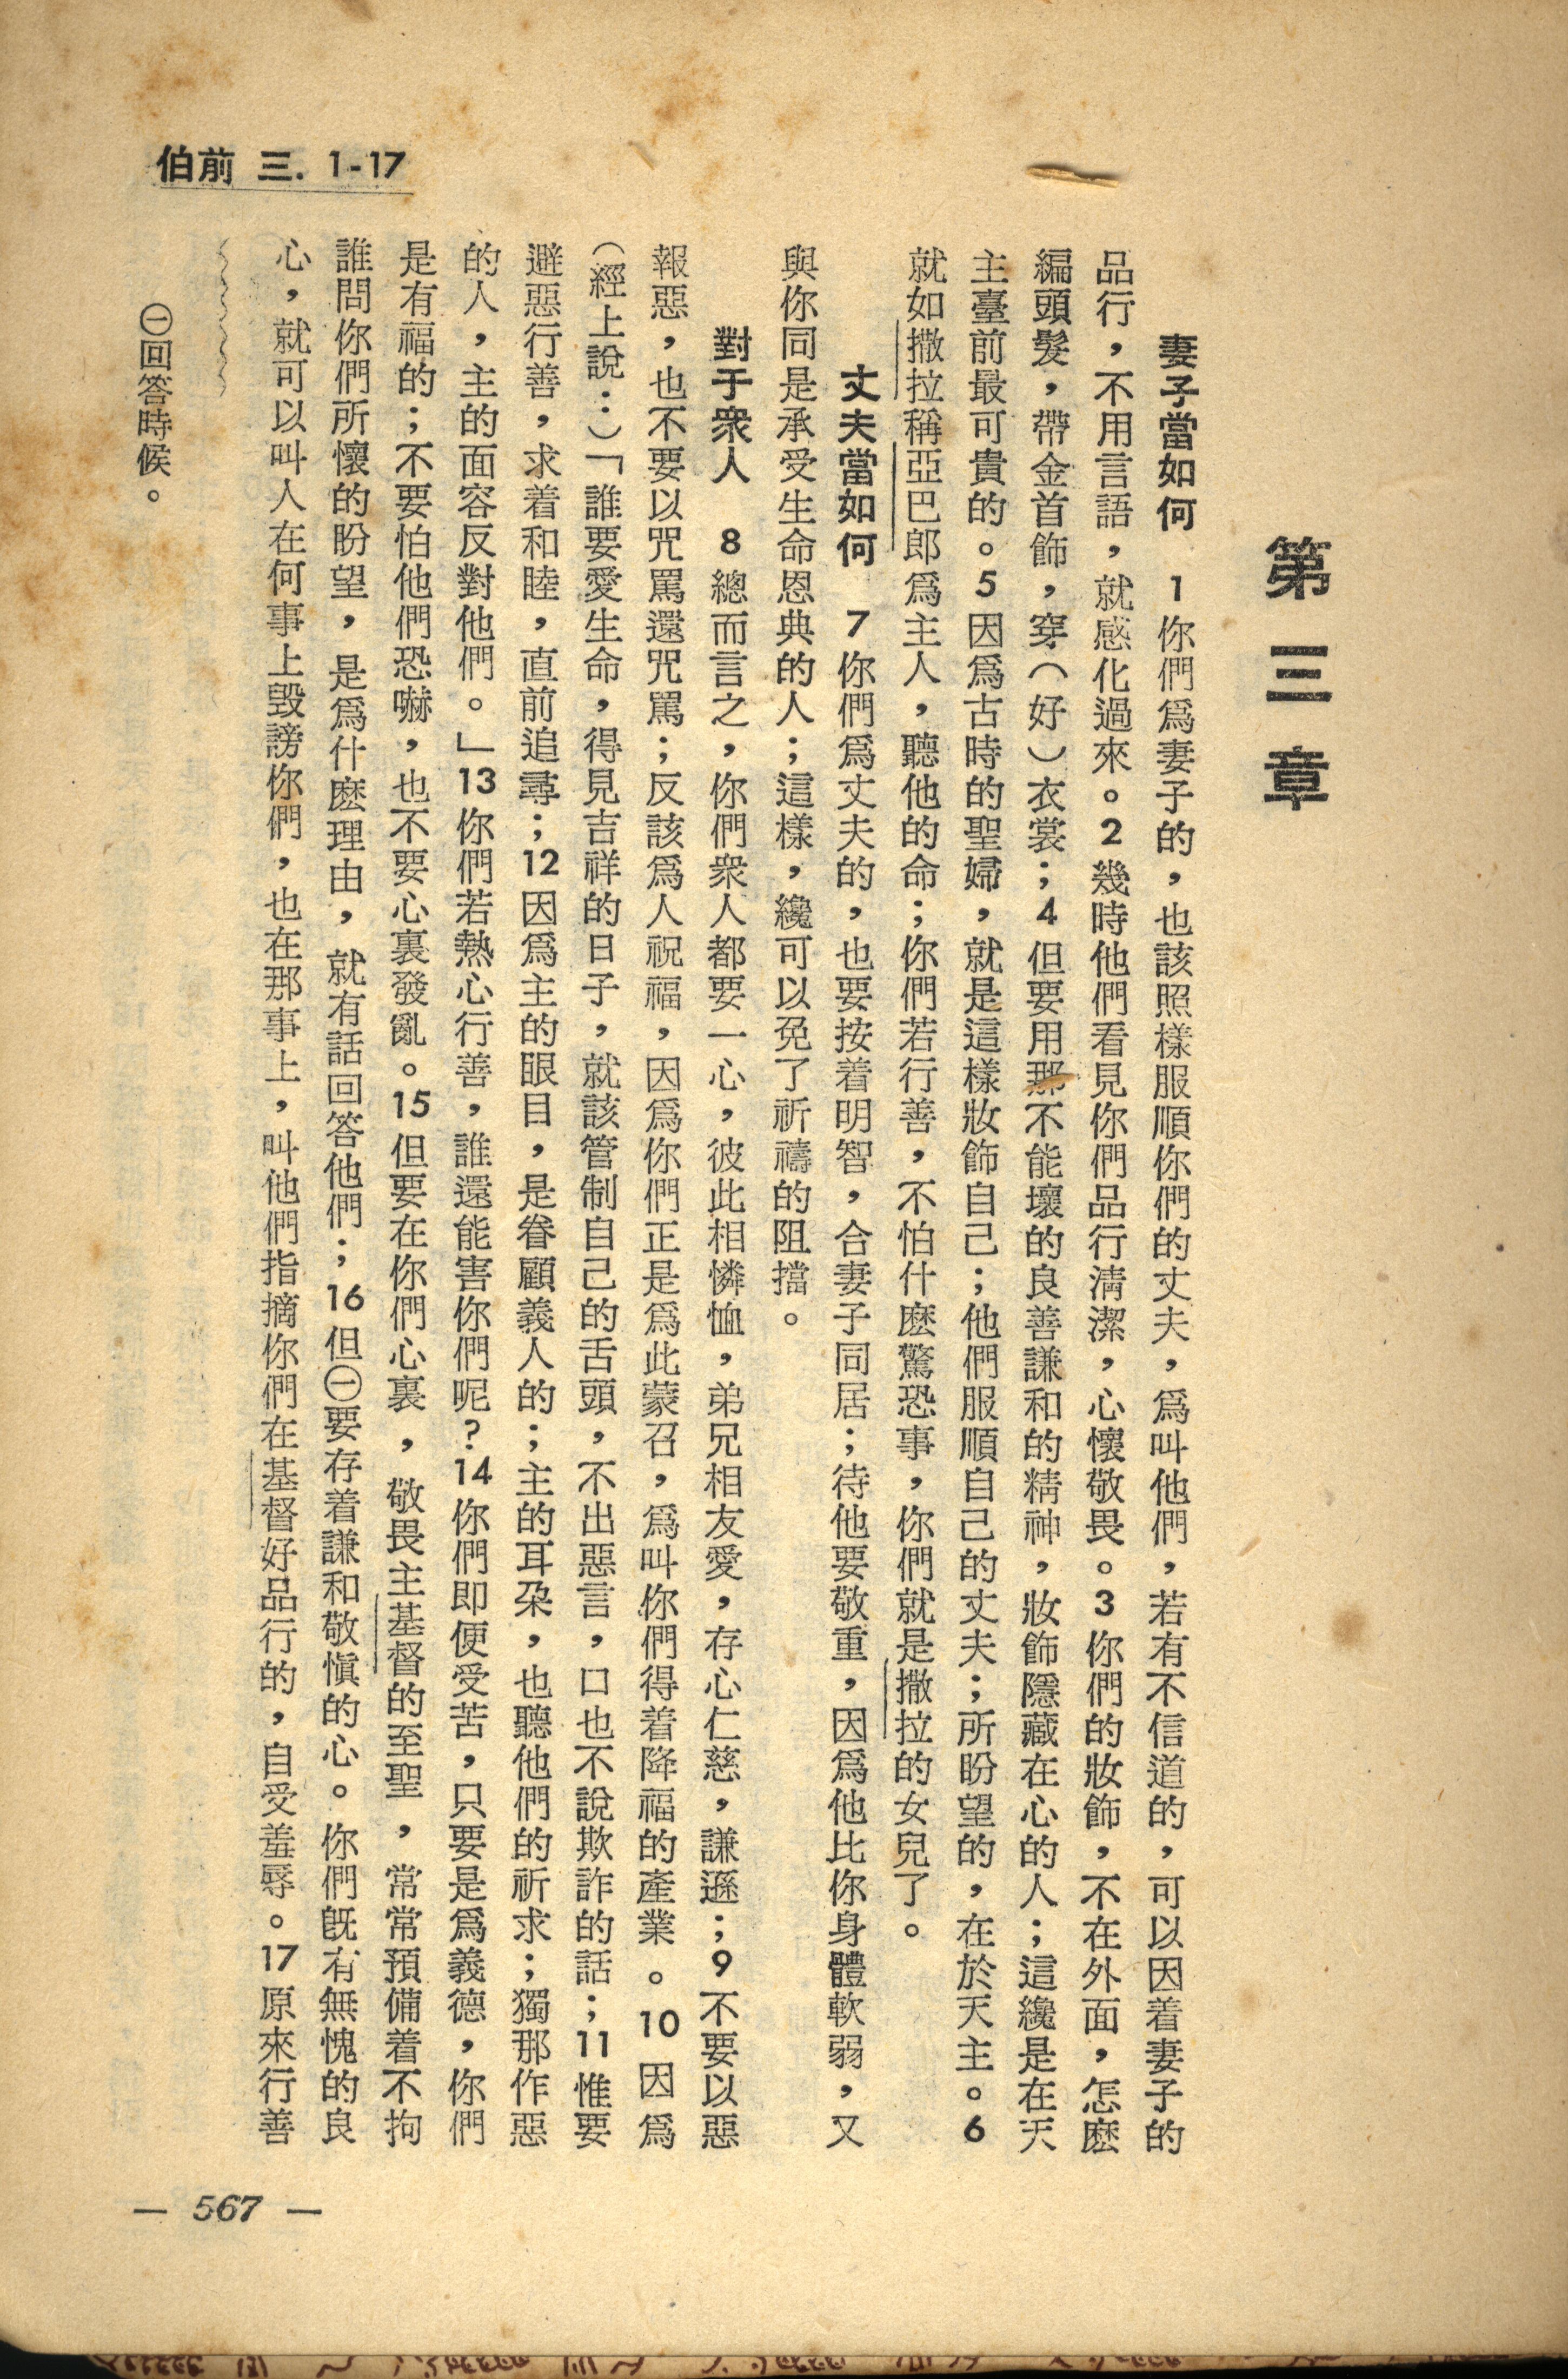 伯前 三. 1-17
第三章
妻子當如何 1你們爲妻子的，也該照樣服順你們的丈夫，爲叫他們，若有不信道的，可以因着妻子的
品行，不用言語，就感化過來。2幾時他們看見你們品行淸潔，心懷敬畏。3你們的妝飾，不在外面，怎麽
編頭髮，帶金首飾，穿（好）衣裳；4但要用那不能壞的良善謙和的精神，妝飾隱藏在心的人；這纔是在天
主臺前最可貴的。5因爲古時的聖婦，就是這樣妝飾自己；他們服順自己的丈夫；所盼望的，在於天主。6
就如撒拉稱亞巴郎爲主人，聽他的命；你們若行善，不怕什麽驚恐事，你們就是撒拉的女兒了。
丈夫當如何 7你們爲丈夫的，也要按着明智，合妻子同居；待他要敬重，因爲他比你身體軟弱，又
與你同是承受生命恩典的人；這樣，纔可以免了祈禱的阻擋。
對于衆人 8總而言之，你們衆人都要一心，彼此相憐恤，弟兄相友愛，存心仁慈，謙遜；9不要以惡
報惡，也不要以咒罵還咒罵；反該爲人祝福，因爲你們正是爲此蒙召，爲叫你們得着降福的產業。10因爲
（經上說：）「誰要愛生命，得見吉祥的日子，就該管制自己的舌頭，不出惡言，口也不說欺詐的話；11惟要
避惡行善，求着和睦，直前追尋；12因爲主的眼目，是眷顧義人的；主的耳朶，也聽他們的祈求；獨那作惡
的人，主的面容反對他們。」13你們若熱心行善，誰還能害你們呢？14你們即便受苦，只要是爲義德，你們
是有福的；不要怕他們恐嚇，也不要心裏發亂。15但要在你們心裏，敬畏主基督的至聖，常常預備着不拘
誰問你們所懷的盼望，是爲什麽理由，就有話回答他們；16但㊀要存着謙和敬愼的心。你們旣有無愧的良
心，就可以叫人在何事上毀謗你們，也在那事上，叫他們指摘你們在基督好品行的，自受羞辱。17原來行善
㊀回答時候。
— 567 —